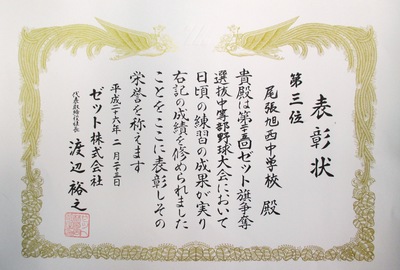 表彰状
第三位
尾張旭西中学校 殿
貴殿は第十二回ゼット旗争奪
選抜中等部野球大会において
日頃の練習の成果が実り
右記の成績を修められました
ことをここに表彰しその
栄誉を称えます
平成二十六年 二月 十五日
ゼット株式会社
代表取締役社長
渡辺裕之